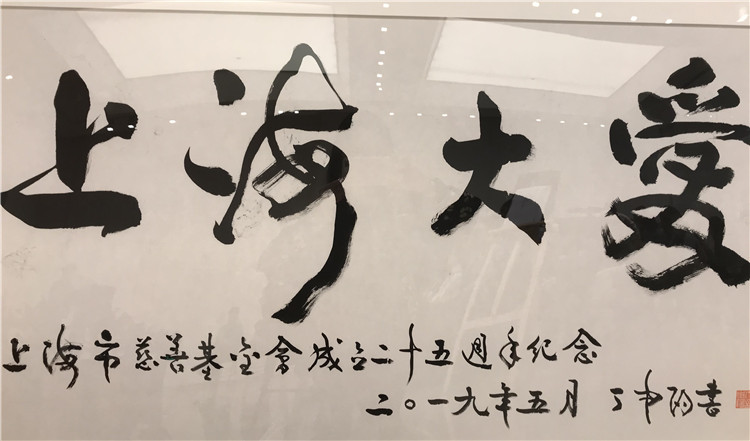 上海大愛
上海市慈善基金會成立二十五週年紀念
二〇一九年五月 丁申陽書